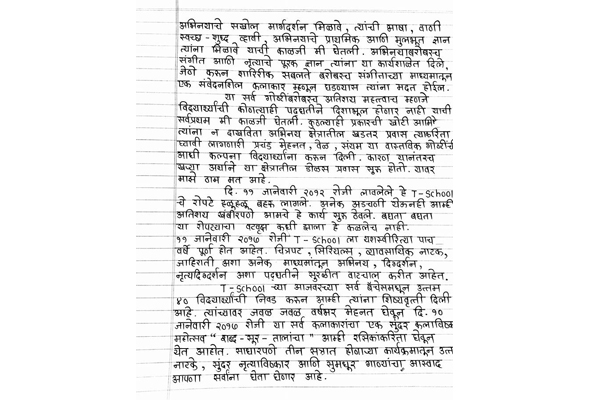 अभिनयाचे सखोल मार्गदर्शन मिळावे, त्यांची भाषा, वाणी
स्वच्छ-शुध्द व्हावी, अभिनयाचे प्राथमिक आणि मुलभूत ज्ञान
त्यांना मिळावे याची काळजी मी घेतली. अभिनयाबरोबरच
संगीत आणि नृत्याचे पूरक ज्ञान त्यांना या कार्यशाळेत दिले.
जेणे करून शारिरीक सबलते बरोबरच संगीताच्या माध्यमातून
एक संवेदनशिल कलाकार म्हणून घडण्यास त्यांना मदत होईल.
या सर्व गोष्टींबरोबरच अतिशय महत्त्वाच म्हणजे
विद्यार्थ्यांची कोणत्याही पध्दतीने दिशाभूल होणार नाही याची
सर्वप्रथम मी काळजी घेतली. कुठल्याही प्रकारची खोटी आमिषे
त्यांना न दाखविता अभिनय क्षेत्रातील खडतर प्रवास त्याकरिता
घ्यावी लागणारी प्रचंड मेहनत, वेळ, संयम या वास्तविक गोष्टींची
आधी कल्पना विद्यार्थ्यांना करून दिली. कारण यानंतरच
खऱ्या अर्थाने या क्षेत्रातील डोळस प्रवास सुरू होतो. यावर
माझे ठाम मत आहे.
दि. ११ जानेवारी २०१२ रोजी लावलेले हे T-School
चे रोपटे हळूहळू बहरू लागले. अनेक अडचणी येऊनही आम्ही
अतिशय खंबीरपणे आमचे हे कार्य सुरू ठेवले. बघता बघता
या रोपट्याचा वटवृक्ष कधी झाला हे कळलेच नाही.
११ जानेवारी २०१७ रोजी T-School ला यशस्वीरित्या पाच
वर्षे पूर्ण होत आहेत. चित्रपट, सिरियल्स, व्यावसायिक नाटक,
जाहिराती अशा अनेक माध्यमांतून अभिनय, दिग्दर्शन,
नृत्यदिग्दर्शन अशा पध्दतीने सुरळीत वाटचाल करीत आहेत.
T-School च्या आजवरच्या सर्व बॅचेसमधून उत्तम
४० विद्यार्थ्यांची निवड करून आम्ही त्यांना शिष्यवृत्ती दिली
आहे. त्यांच्यावर जवळ जवळ वर्षभर मेहनत घेवून दि. १०
जानेवारी २०१७ रोजी या सर्व कलाकारांचा एक सुंदर कलाविष्कार
महोत्सव "शब्द-सूर-तालांचा" आम्ही रसिकांकरिता घेवून
येत आहोत. साधारणपणे तीन सत्रात होणाऱ्या कार्यक्रमातून उत्तम
नाटके, सुंदर नृत्याविष्कार आणि सुमधूर गाण्यांचा आस्वाद
आपणा सर्वांना घेता येणार आहे.